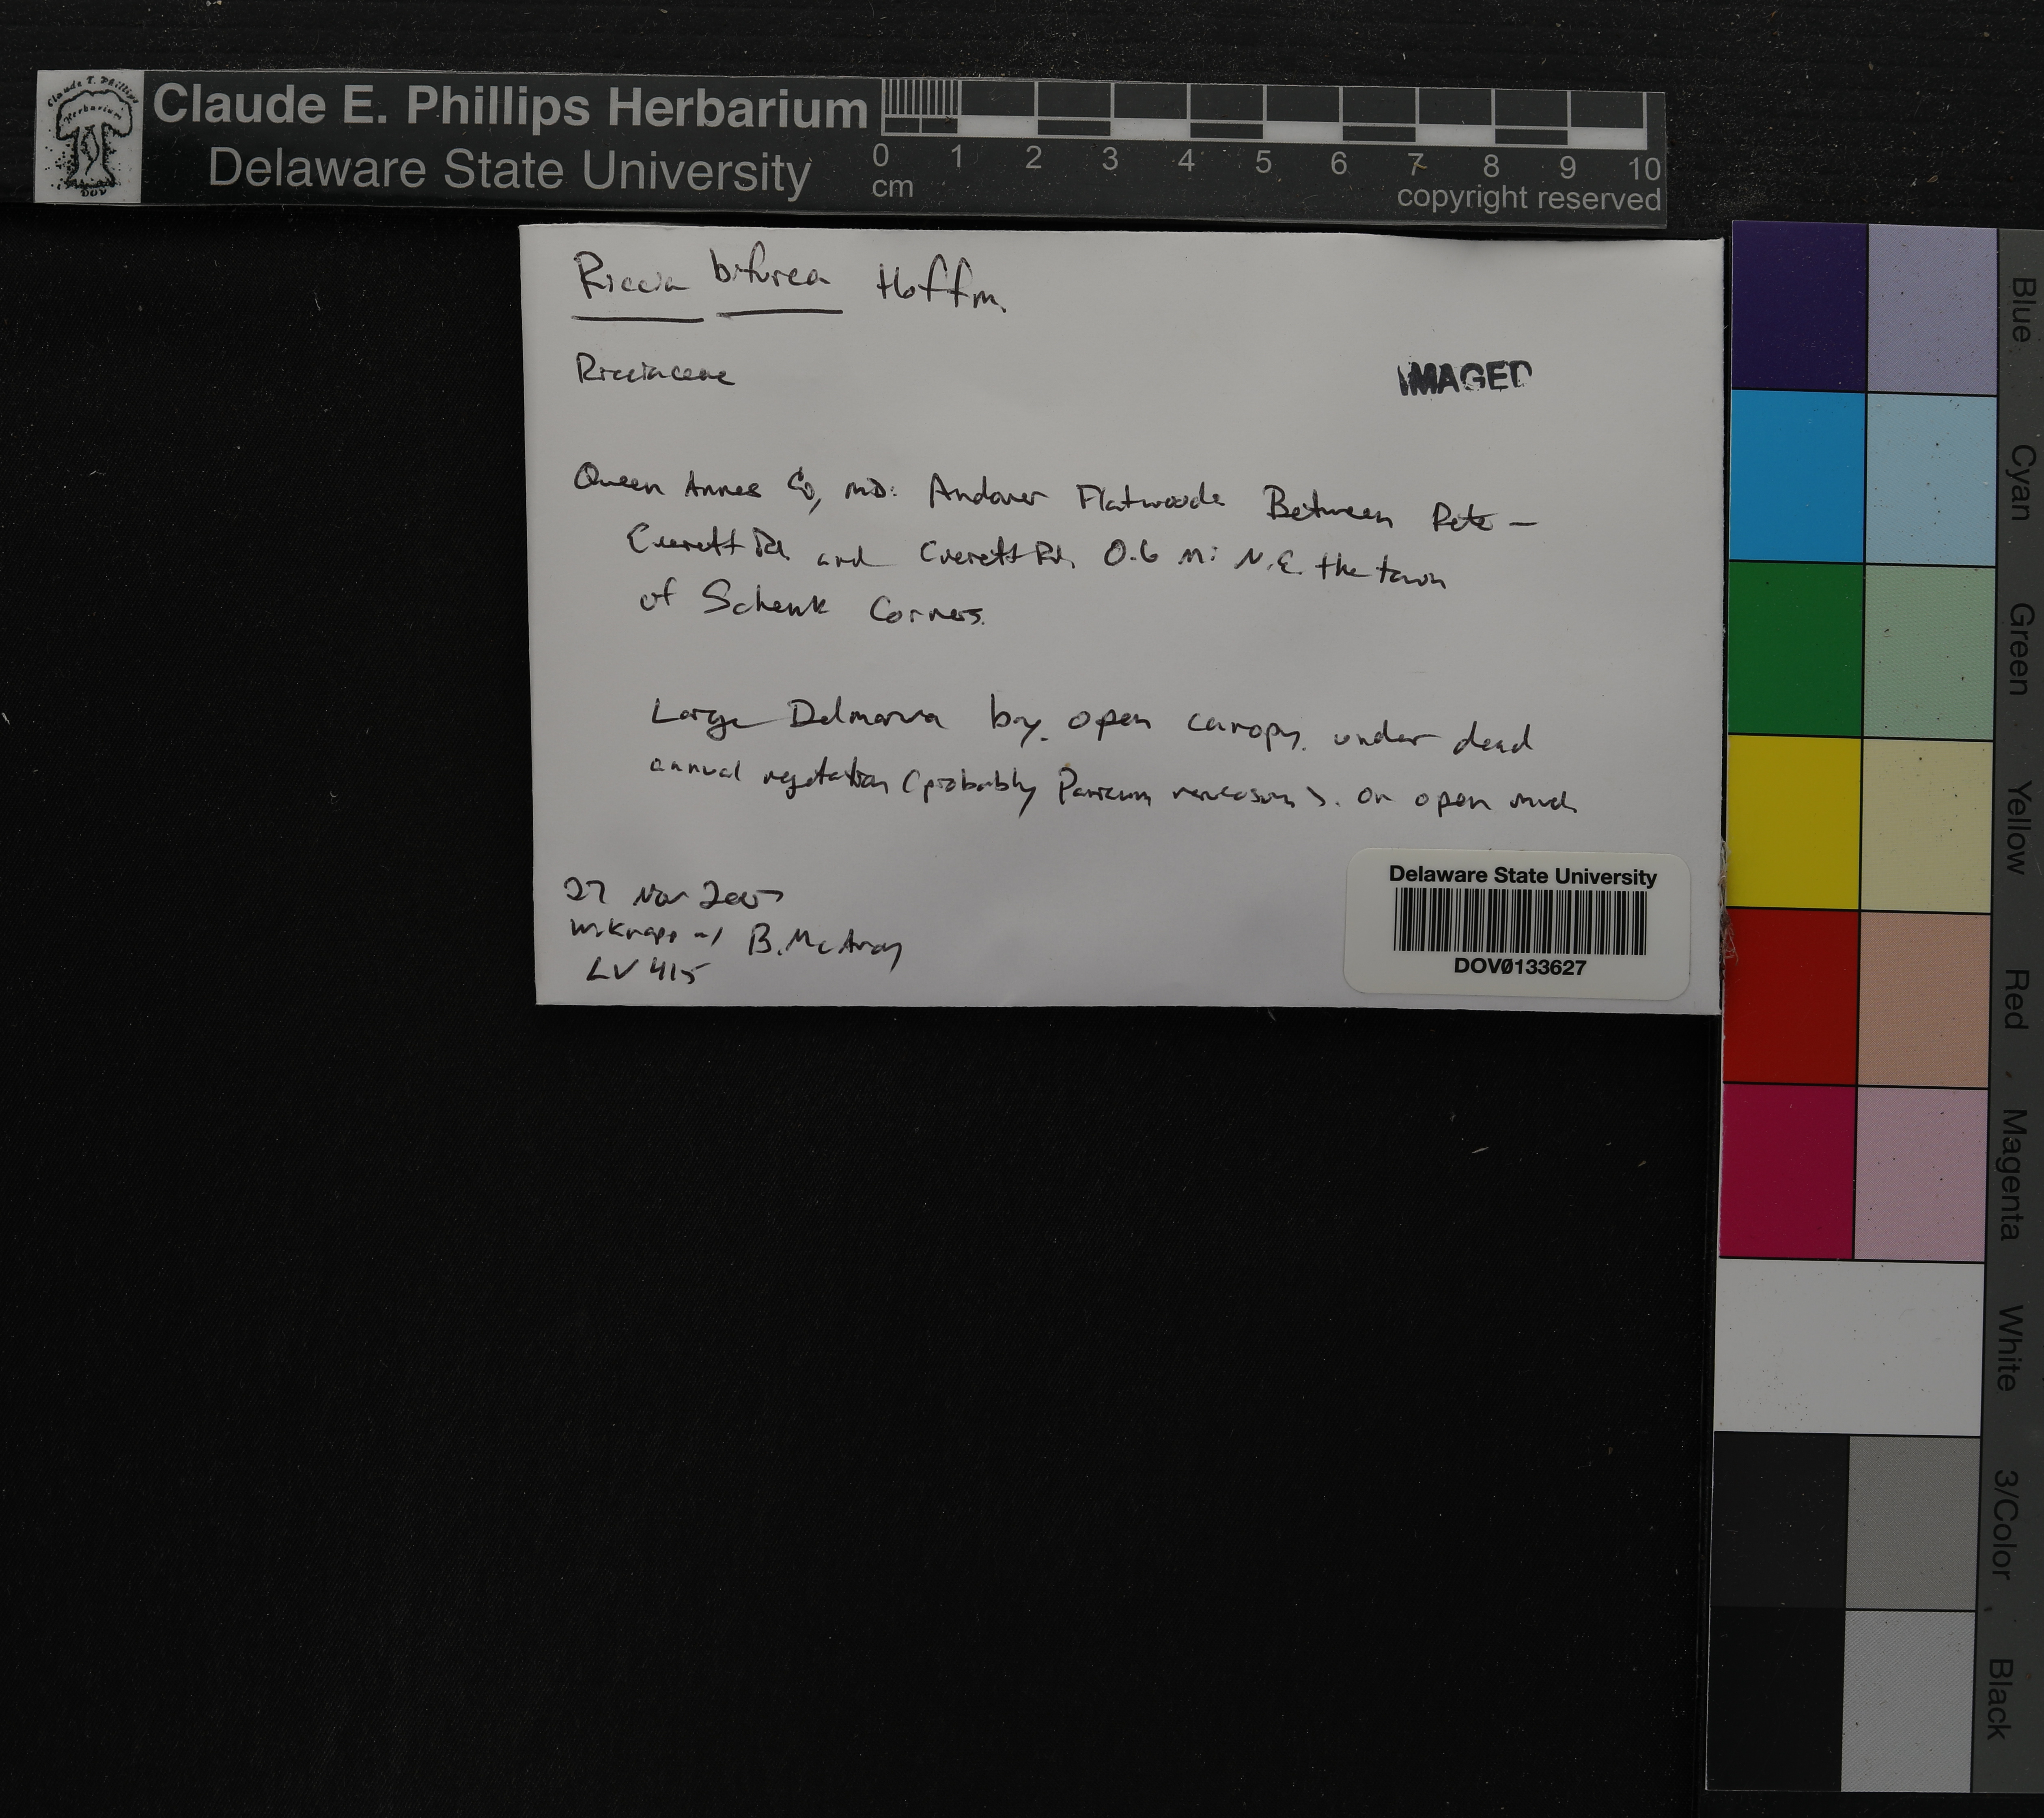 Claude E. Phillips Herbarium
Delaware State University
0 1 2 3 4 5 6 7 8 9 10
cm
copyright reserved
Claude E. Phillips
Herbarium
DOV
Riccia bifurca Hoffm.
Ricciaceae
IMAGED
Queen Annes Co, MD: Andover Flatwoods Between Pete-
Everett Rd and Everett Rd, 0.6 mi N.E. the town
of Schenk Corners.
Large Delmarva bay. open canopy. under dead
annual vegetation (probably Panicum verrucosum). on open muck
27 Nov
W. Knapp w/ B. McAvoy
LV 415
Delaware State University
DOV0133627
Blue
Cyan
Green
Yellow
Red
Magenta
White
3/Color
Black